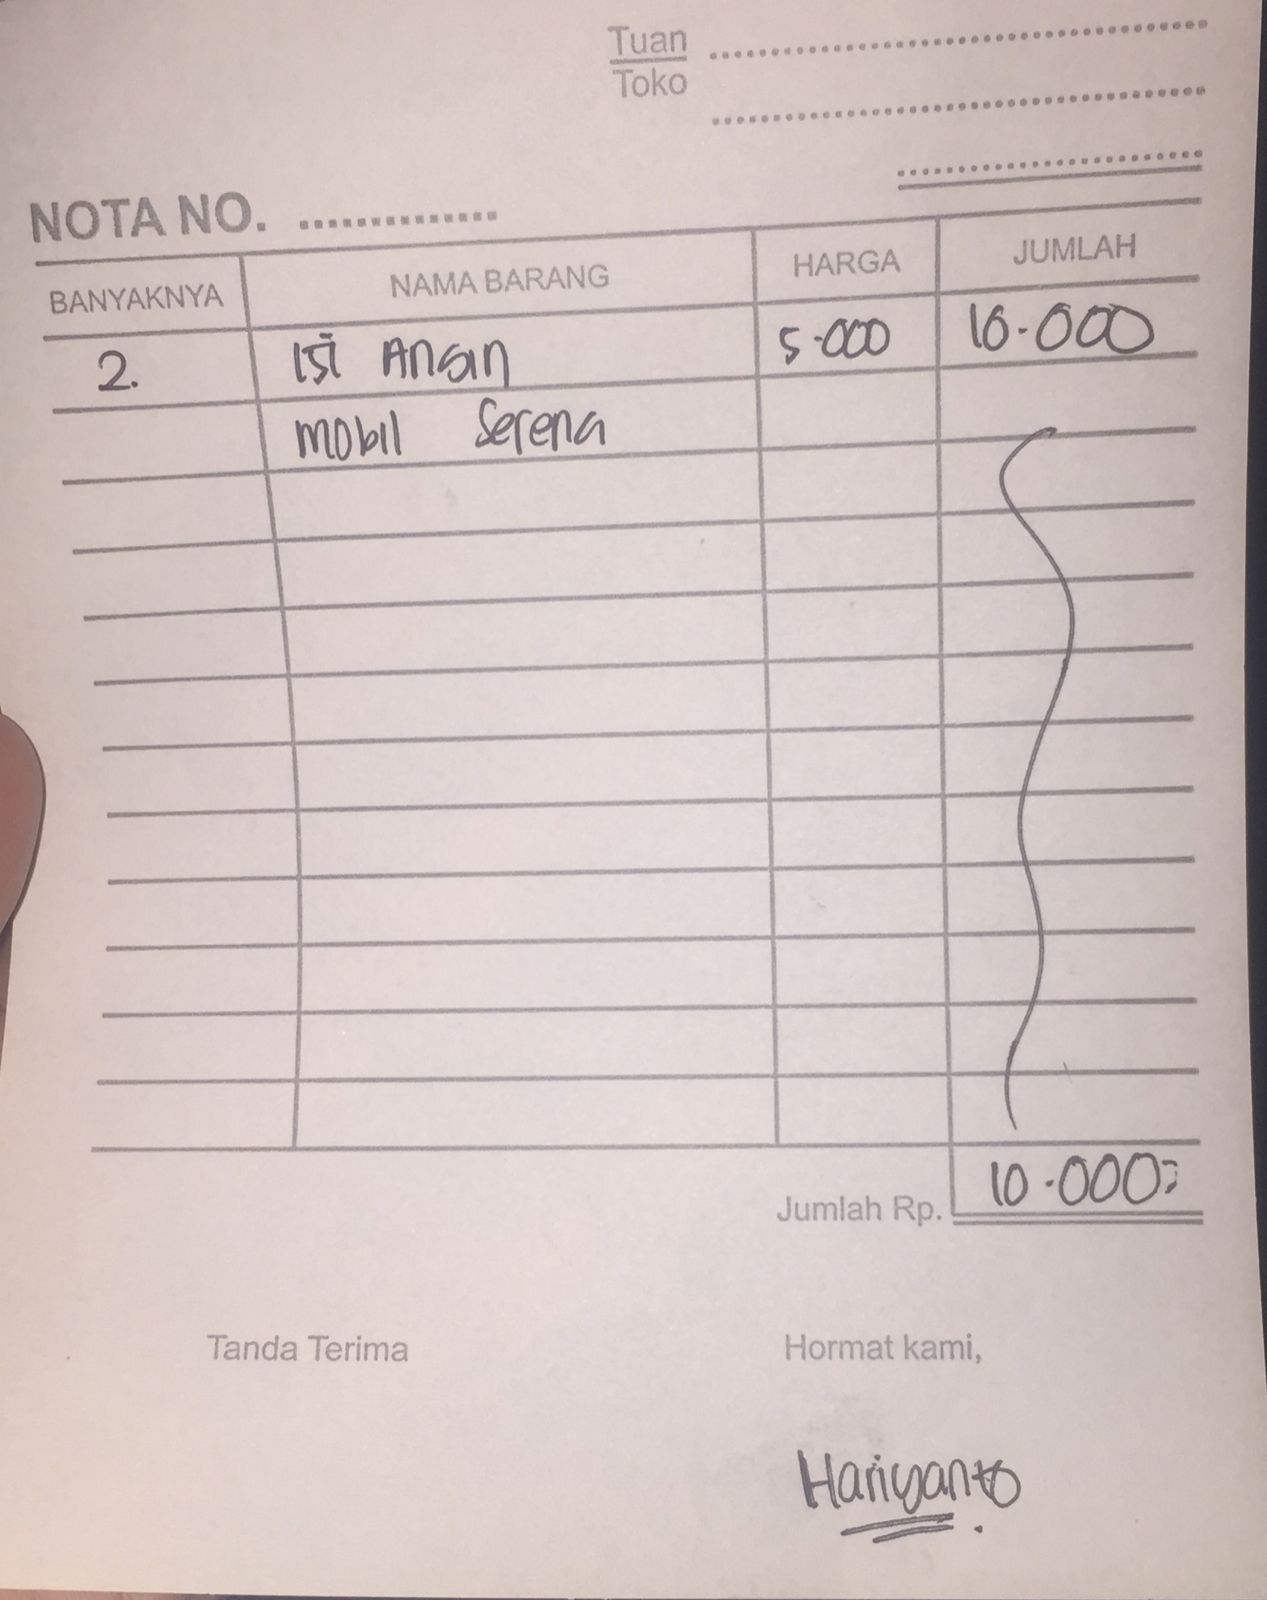 Tuan
Toko
NOTA NO.
BANYAKNYA NAMA BARANG HARGA JUMLAH
2. Isi Angin 5.000 10.000
mobil Serena
Jumlah Rp. 10.000,-
Tanda Terima Hormat kami,
Hariyanto